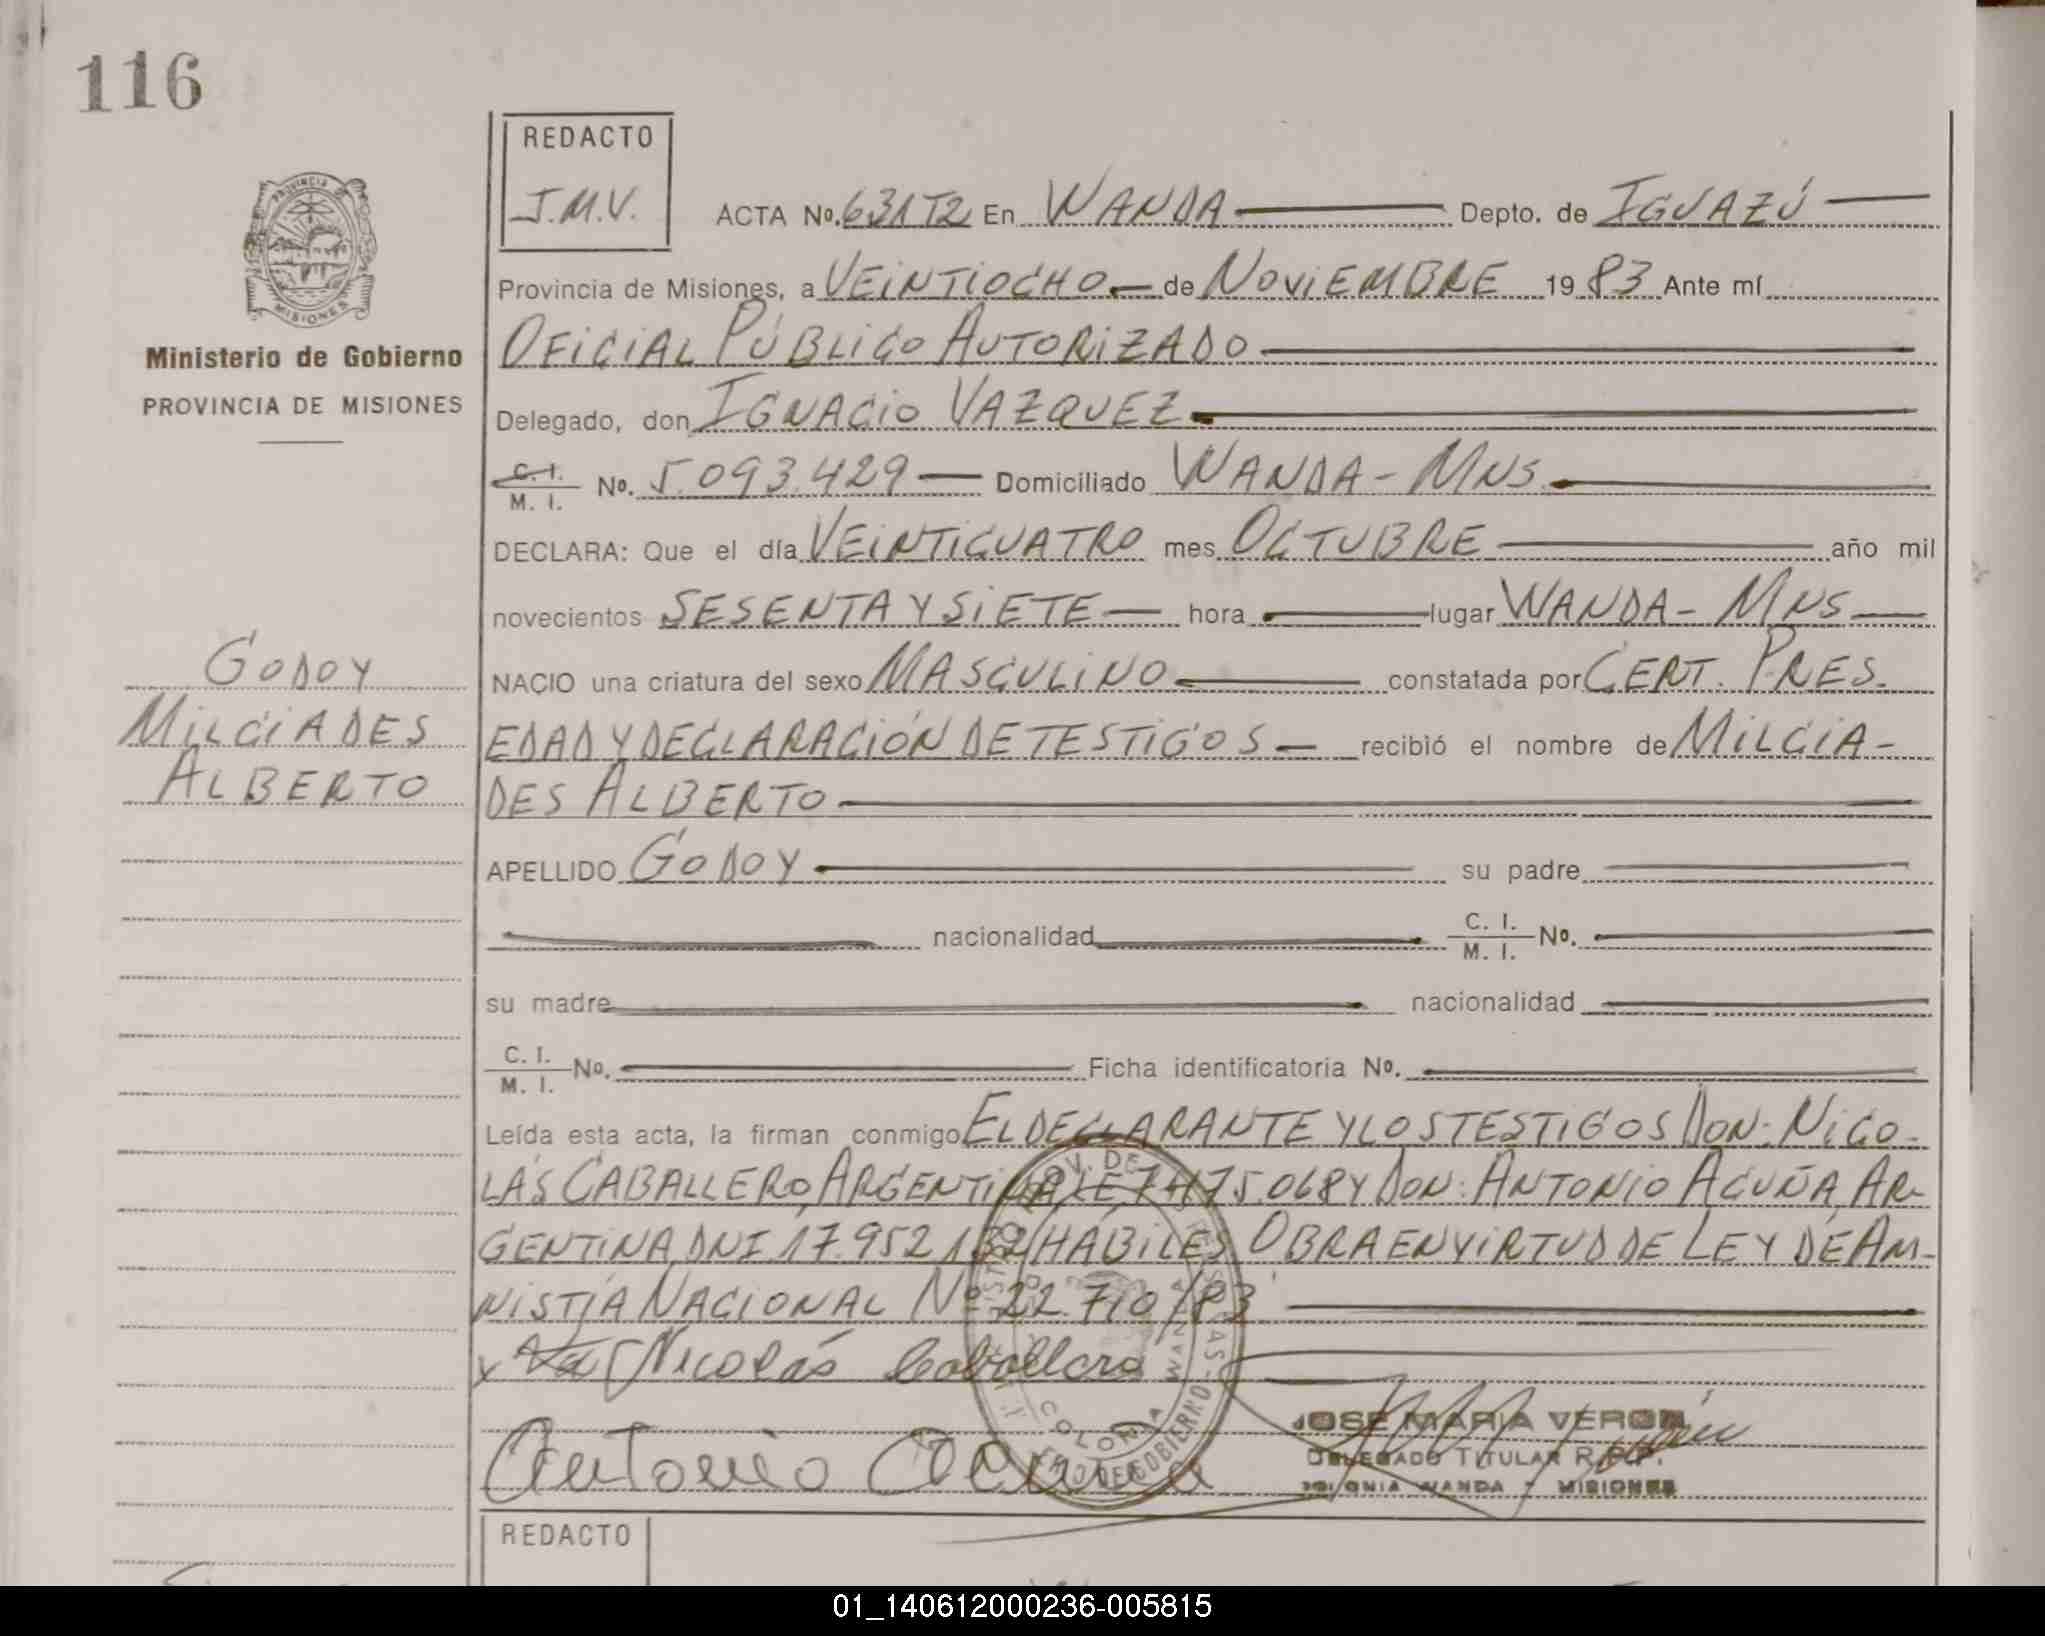 116
REDACTO
J.M.V.
ACTA No. 631T2 En WANDA Depto. de IGUAZÚ
Provincia de Misiones, a VEINTIOCHO de NOVIEMBRE 1983 Ante mí
OFICIAL PÚBLICO AUTORIZADO
Delegado, don IGNACIO VAZQUEZ
C. I.
M. I. No. 5.093.429 Domiciliado WANDA - MNS.
DECLARA: Que el día VEINTICUATRO mes OCTUBRE año mil
novecientos SESENTA Y SIETE hora lugar WANDA - MNS
NACIO una criatura del sexo MASCULINO constatada por CERT. PRES.
EDAD Y DECLARACIÓN DE TESTIGOS recibió el nombre de MILCIA-
DES ALBERTO
APELLIDO GODOY su padre
nacionalidad C. I.
M. I. No.
su madre nacionalidad
C. I.
M. I. No. Ficha identificatoria No.
Leída esta acta, la firman conmigo EL DECLARANTE Y LOS TESTIGOS DON: NICO-
LÁS CABALLERO, ARGENTINA LE 7.475.068 Y DON: ANTONIO ACUÑA, AR-
GENTINA, DNI 17.952.132 HÁBILES OBRA EN VIRTUD DE LEY DE AM-
NISTÍA NACIONAL Nº 22.710/83
Nicolás Caballero
Antonio Acuña
JOSE MARIA VERON
DELEGADO TITULAR R.P.P.
COLONIA WANDA - MISIONES
REDACTO
PROVINCIA DE
MISIONES
Ministerio de Gobierno
PROVINCIA DE MISIONES
GODOY
MILCIADES
ALBERTO
01_140612000236-005815